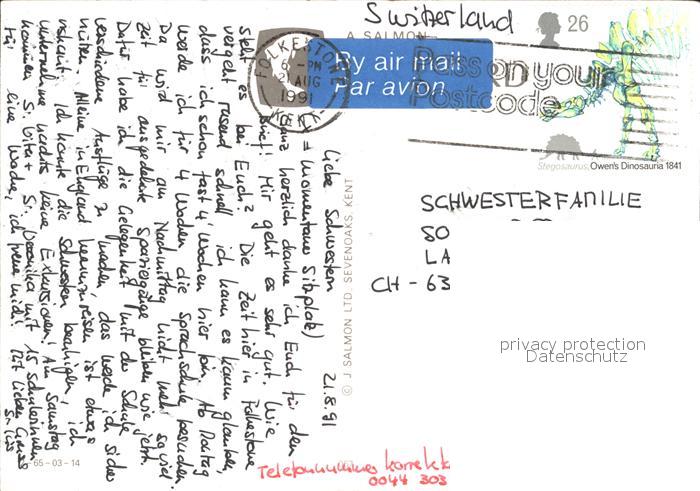 Switzerland
A SALMON
FOLKESTONE
6 - PM
21 AUG
1991
KENT
By air mail
Par avion
Pass on your
Postcode
26
Stegosaurus, Owen's Dinosauria 1841
SCHWESTERFAMILIE
SO
LA
CH - 63
privacy protection
Datenschutz
Telefonnummer korrekt
0044 303
© J. SALMON LTD. SEVENOAKS, KENT
65-03-14
21.8.91
Liebe Schwestern
(= momentaner Sitzplatz)
Ganz herzlich danke ich Euch für den
Brief! Mir geht es sehr gut. Wie
steht es bei Euch? Die Zeit hier in Folkestone
vergeht rasend schnell, ich kann es kaum glauben,
dass ich schon fast 4 Wochen hier bin. Ab Montag
werde ich für 4 Wochen die Sprachschule besuchen.
Da wird mir am Nachmittag nicht mehr so viel
Zeit für ausgedehnte Spaziergänge bleiben wie jetzt.
Dafür habe ich die Gelegenheit mit der Schule
verschiedene Ausflüge zu machen, das werde ich sicher
nützen. Alleine in England herumzureisen ist etwas
riskant. Ich kann die Schwestern beruhigen, ich
unternehme nachts keine Exkursionen! Am Samstag
kommen Sr. Sr. Veronika mit 15 Schülerinnen
für eine Woche, ich freue mich! Mit lieben Grüssen